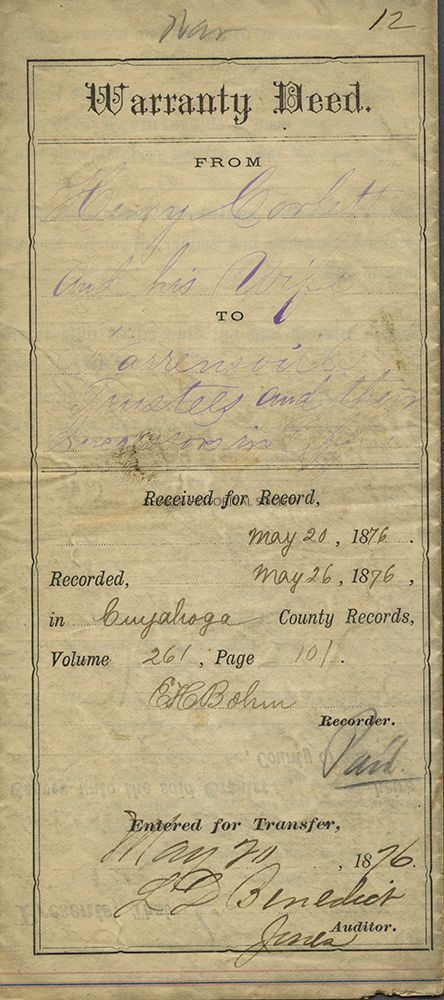 12
Warranty Deed.
FROM
Henry Corlett
and his Wife
TO
Warrensville
Trustees and their
successors in
Received for Record,
May 20, 1876.
Recorded, May 26, 1876,
in Cuyahoga County Records,
Volume 261, Page 101.
E H Bohm
Recorder.
Paid.
Entered for Transfer,
May 20, 1876.
L D Benedict
Auditor.
Jones